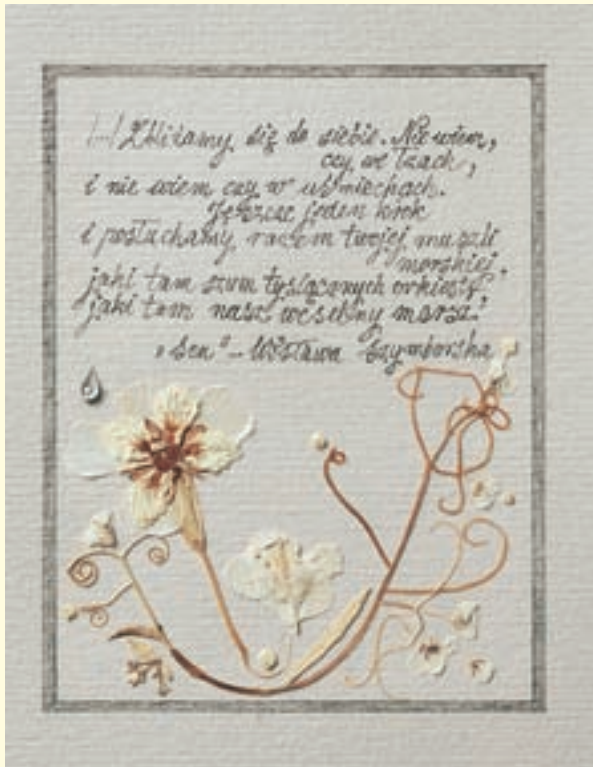 /.../ Zbliżamy się do siebie. Nie wiem,
czy we łzach,
i nie wiem czy w uśmiechach.
Jeszcze jeden krok
i posłuchamy razem twojej muszli
morskiej,
jaki tam szum tysiącznych orkiestr,
jaki tam nasz weselny marsz.
"Sen" - Wisława Szymborska